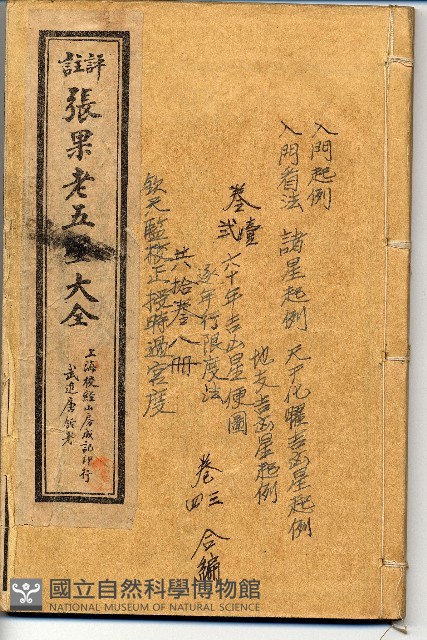 入門起例
入門看法 諸星起例 天干化曜吉凶星起例
地支吉凶星起例
卷壹貳 六十年吉凶星便圖
逐年行限度法
卷三四 合編
共拾叁八冊
欽天監校正授時過宮度
評註
張果老五大全
上海校經山房成記印行
武進唐
國立自然科學博物館
NATIONAL MUSEUM OF NATURAL SCIENCE